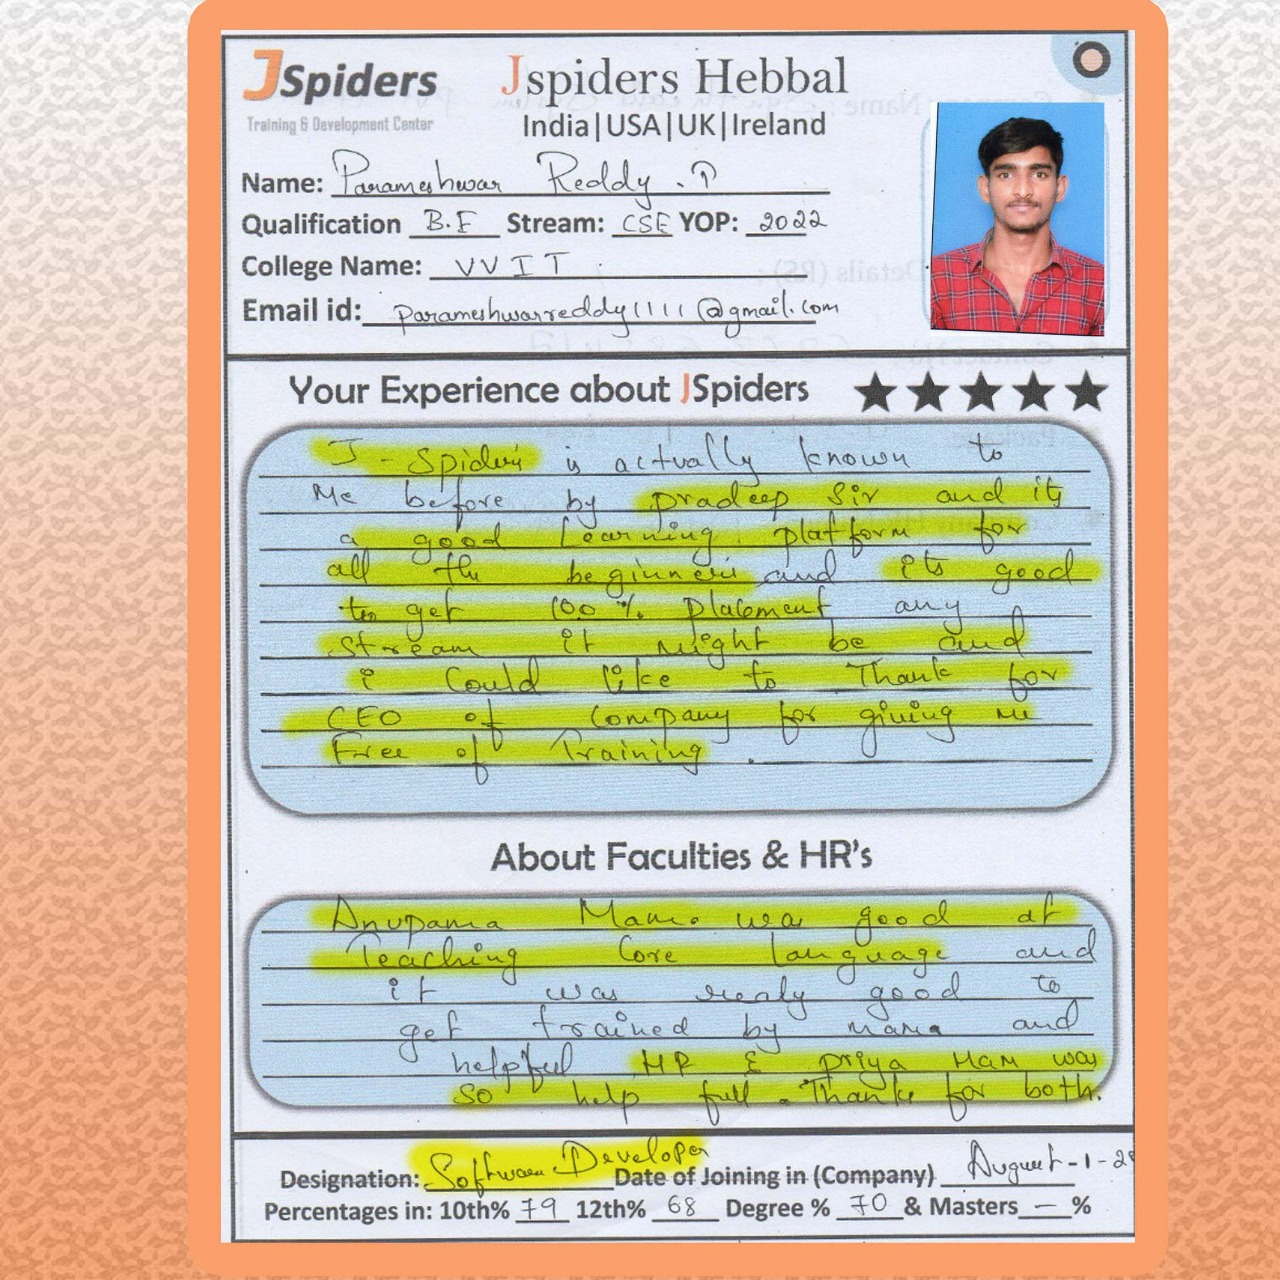 JSpiders
Training & Development Center
Jspiders Hebbal
India|USA|UK|Ireland
Name: Parameshwar Reddy .P
Qualification B.E Stream: CSE YOP: 2022
College Name: VVIT
Email id: parameshwarreddy1111@gmail.com
Your Experience about JSpiders
J-Spiders is actually known to
Me before by pradeep Sir and its
a good Learning platform for
all the beginners and its good
to get 100% Placement any
stream it might be and
i Could like to Thank for
CEO of Company for giving me
Free of Training.
About Faculties & HR's
Anupama Mam. was good at
Teaching Core language and
it was realy good to
get trained by mama and
helpful HR & priya Mam was
so help full. Thanks for both.
Designation: Software Developer Date of Joining in (Company) August-1-
Percentages in: 10th% 79 12th% 68 Degree % 70 & Masters — %